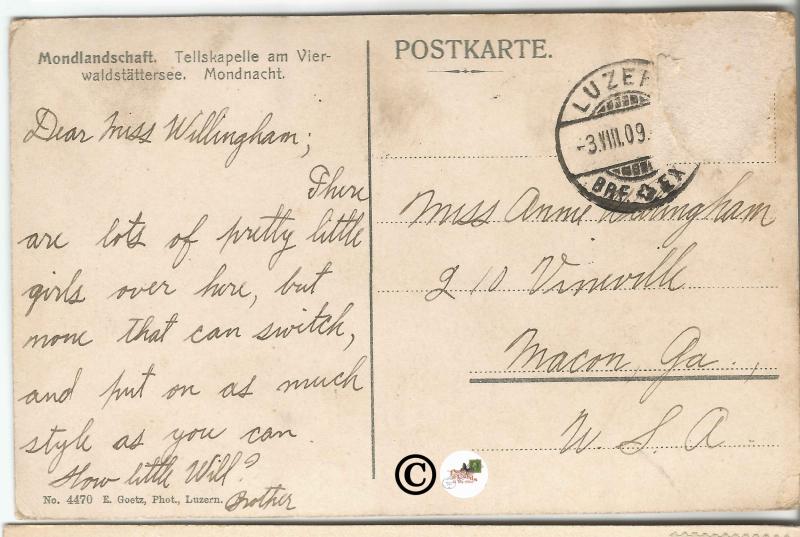 Mondlandschaft. Tellskapelle am Vier-
waldstättersee. Mondnacht.
Dear Miss Willingham;
There
are lots of pretty little
girls over here, but
none that can switch,
and put on as much
style as you can.
How little Will?
Brother
No. 4470 E. Goetz, Phot., Luzern.
POSTKARTE.
LUZER
-3.VIII.09.
BRF. EX
Miss Annie Willingham
210 Vineville
Macon, Ga.,
U. S. A.
©